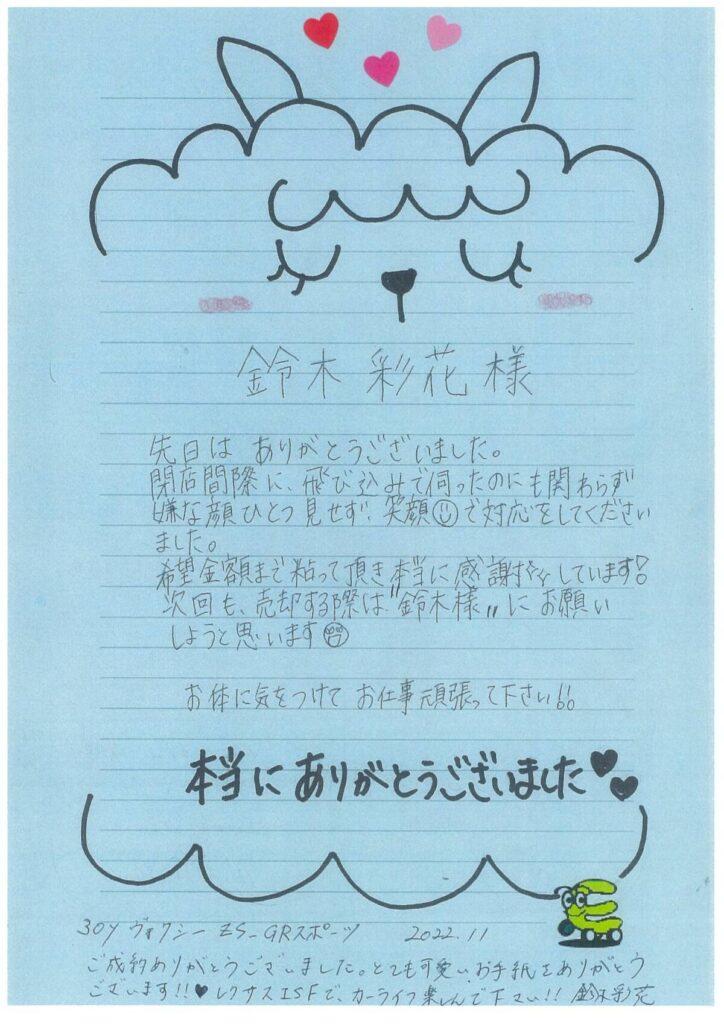 鈴木 彩花 様
先日は ありがとうございました。
閉店間際に、飛び込みで伺ったのにも関わらず
嫌な顔ひとつ見せず、笑顔で対応をしてください
ました。
希望金額まで粘って頂き本当に感謝しています!
次回も、売却する際は"鈴木様"にお願い
しようと思います
お体に気をつけて お仕事頑張って下さい!!
本当にありがとうございました
30y ヴォクシー ZS-GRスポーツ 2022.11
ご成約ありがとうございました。とても可愛いお手紙をありがとう
ございます!!♥ レクサスISFで、カーライフ楽しんで下さい!! 鈴木彩花